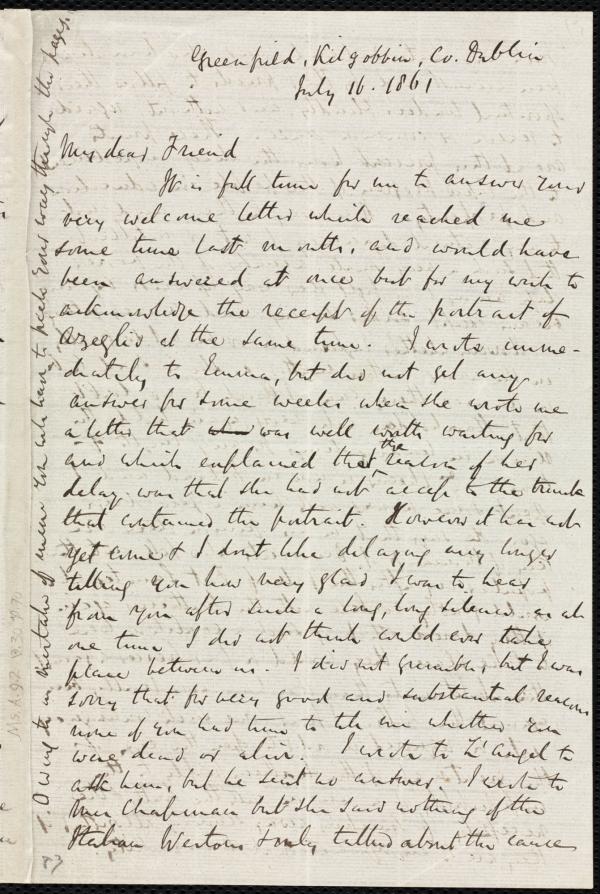 Greenfield, Kilgobbin, Co. Dublin
July 16. 1861
My dear Friend
It is full time for me to answer your
very welcome letter which reached me
some time last month, and would have
been answered at once but for my wish to
acknowledge the receipt of the portrait of
Azeglio at the same time. I wrote imme-
diately to Emma, but did not get any
answer for some weeks when she wrote me
a letter that was well worth waiting for
and which explained that the reason of her
delay was that she had not access to the trunk
that contained the portrait. However it has not
yet come & I don't like delaying any longer
telling you how very glad I was to hear
from you after such a long, long silence as at
one time I did not think could ever take
place between us. I did not grumble, but I was
sorry that for very good and substantial reasons
none of you had time to tell me whether you
were dead or alive. I wrote to L'Angel to
ask him, but he sent no answer. I wrote to
Mrs Chapman but she said nothing of the
Italian Westons & only talked about the cause
1. Owing to a mistake of mine you will have to pick your way through the pages.
Ms. A. 9.2 v. 30 p. 70
83